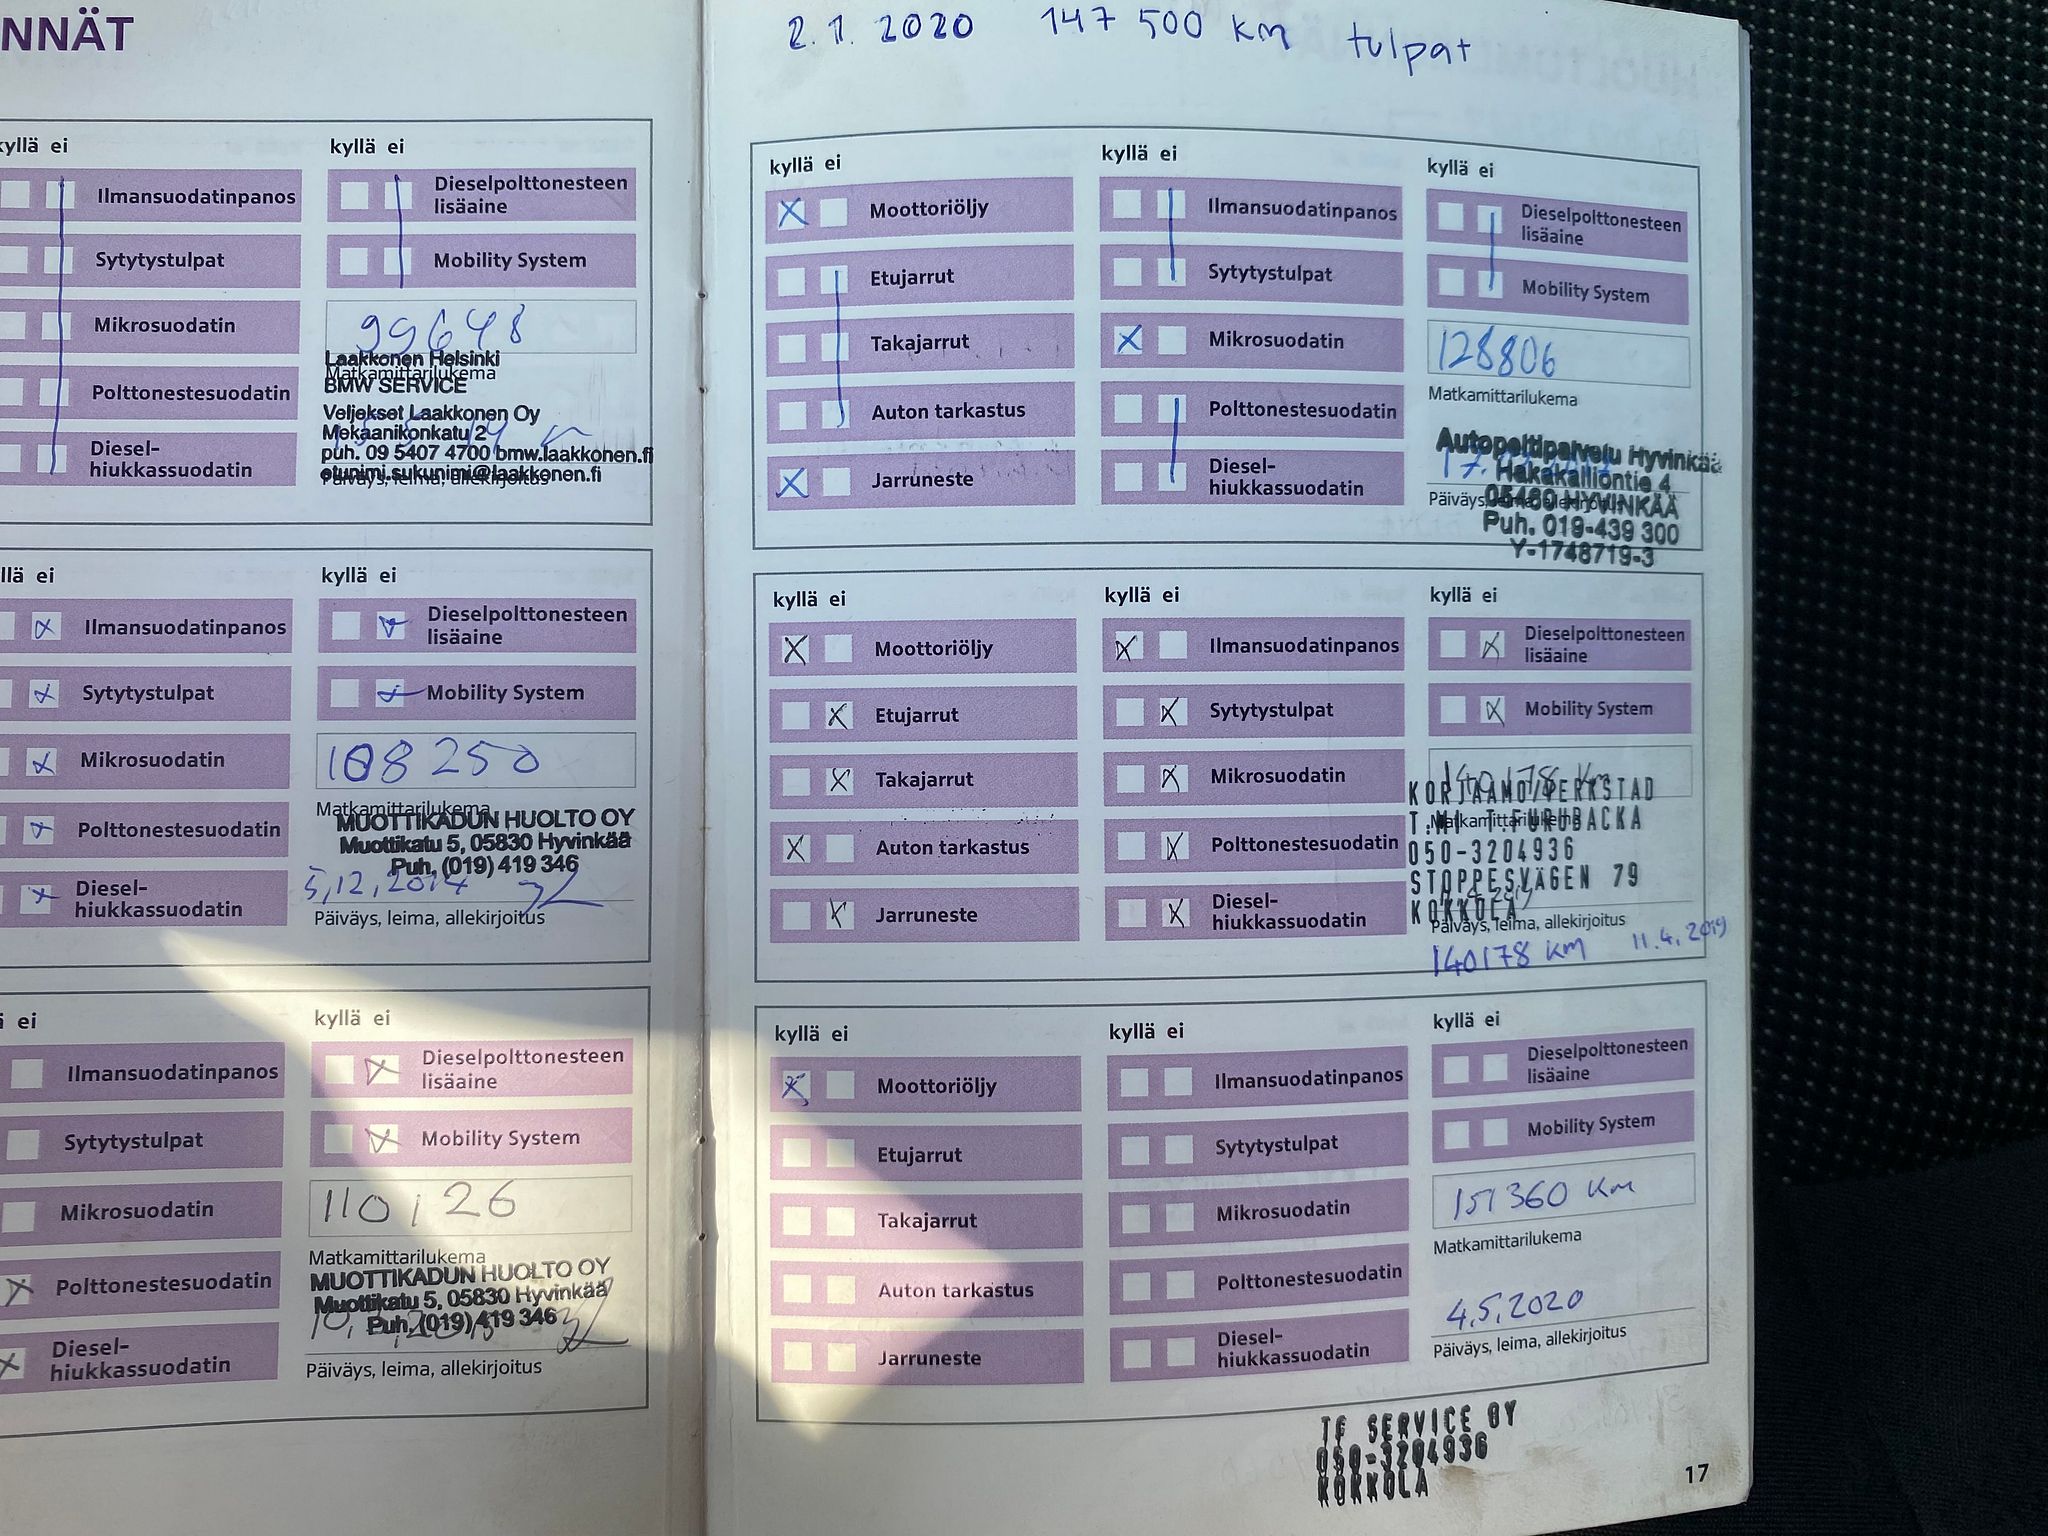 NNÄT
kyllä ei
Ilmansuodatinpanos
Sytytystulpat
Mikrosuodatin
Polttonestesuodatin
Diesel-
hiukkassuodatin
kyllä ei
Dieselpolttonesteen
lisäaine
Mobility System
99648
Matkamittarilukema
Laakkonen Helsinki
BMW SERVICE
Veljekset Laakkonen Oy
Mekaanikonkatu 2
puh. 09 5407 4700 bmw.laakkonen.fi
etunimi.sukunimi@laakkonen.fi
Päiväys, leima, allekirjoitus
llä ei
Ilmansuodatinpanos
Sytytystulpat
Mikrosuodatin
Polttonestesuodatin
Diesel-
hiukkassuodatin
kyllä ei
Dieselpolttonesteen
lisäaine
Mobility System
108250
Matkamittarilukema
MUOTTIKADUN HUOLTO OY
Muottikatu 5, 05830 Hyvinkää
Puh. (019) 419 346
5,12,2014
Päiväys, leima, allekirjoitus
ä ei
Ilmansuodatinpanos
Sytytystulpat
Mikrosuodatin
Polttonestesuodatin
Diesel-
hiukkassuodatin
kyllä ei
Dieselpolttonesteen
lisäaine
Mobility System
110126
Matkamittarilukema
MUOTTIKADUN HUOLTO OY
Muottikatu 5, 05830 Hyvinkää
Puh. (019) 419 346
Päiväys, leima, allekirjoitus
2.1.2020 147 500 km tulpat
kyllä ei
Moottoriöljy
Etujarrut
Takajarrut
Auton tarkastus
Jarruneste
kyllä ei
Ilmansuodatinpanos
Sytytystulpat
Mikrosuodatin
Polttonestesuodatin
Diesel-
hiukkassuodatin
kyllä ei
Dieselpolttonesteen
lisäaine
Mobility System
128806
Matkamittarilukema
Autopeltipalvelu Hyvinkää
Hakakalliontie 4
05460 HYVINKÄÄ
Puh. 019-439 300
Y-1748719-3
Päiväys
kyllä ei
Moottoriöljy
Etujarrut
Takajarrut
Auton tarkastus
Jarruneste
kyllä ei
Ilmansuodatinpanos
Sytytystulpat
Mikrosuodatin
Polttonestesuodatin
Diesel-
hiukkassuodatin
kyllä ei
Dieselpolttonesteen
lisäaine
Mobility System
140178 km
Matkamittarilukema
KORJAAMO/VERKSTAD
T:MI T.FURUBACKA
050-3204936
STOPPESVÄGEN 79
KOKKOLA
Päiväys, leima, allekirjoitus
140178 km 11.4.2019
kyllä ei
Moottoriöljy
Etujarrut
Takajarrut
Auton tarkastus
Jarruneste
kyllä ei
Ilmansuodatinpanos
Sytytystulpat
Mikrosuodatin
Polttonestesuodatin
Diesel-
hiukkassuodatin
kyllä ei
Dieselpolttonesteen
lisäaine
Mobility System
151360 km
Matkamittarilukema
4.5.2020
Päiväys, leima, allekirjoitus
TF SERVICE OY
050-3204936
KOKKOLA
17